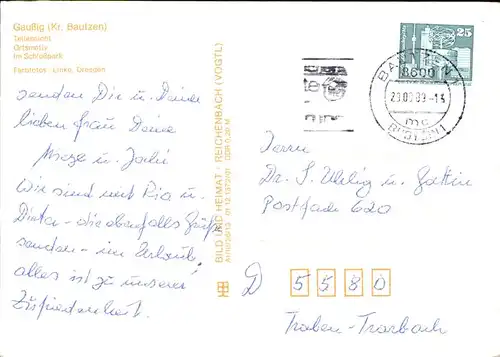 Gaußig (Kr. Bautzen)
Teilansicht
Ortsmotiv
Im Schloßpark
Farbfotos: Linke, Dresden
senden Dir u. Deiner
lieben Frau Deine
u. Julie
Wir sind mit Pia u.
Dieter - die ebenfalls Grüße
senden - im Urlaub
alles ist zu unserer
Zufriedenheit.
BILD UND HEIMAT · REICHENBACH (VOGTL)
DDR 0,20 M
25
BAUTZEN 1
8600
Herrn
Dr. J. Uhlig u. Gattin
Postfach 620
D 5580
Traben-Trarbach